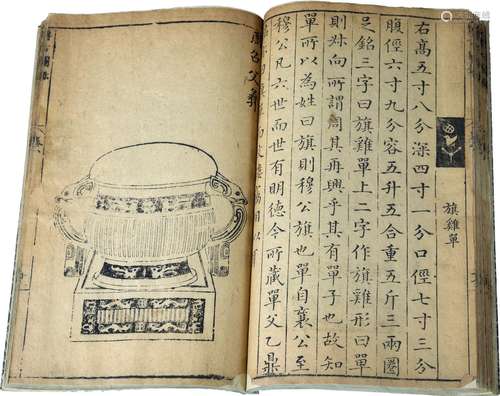 旗雞單
右高五寸八分深四寸一分口徑七寸三分
腹徑六寸九分容五升五合重五斤三兩圈
足銘三字曰旗雞單上二字作旗雞形曰單
則叔向所謂周其再興乎其有單子也故知
單所以為姓曰旗則穆公旗也單自襄公至
穆公凡六世而世有明德今所藏單父乙鼎
父彝